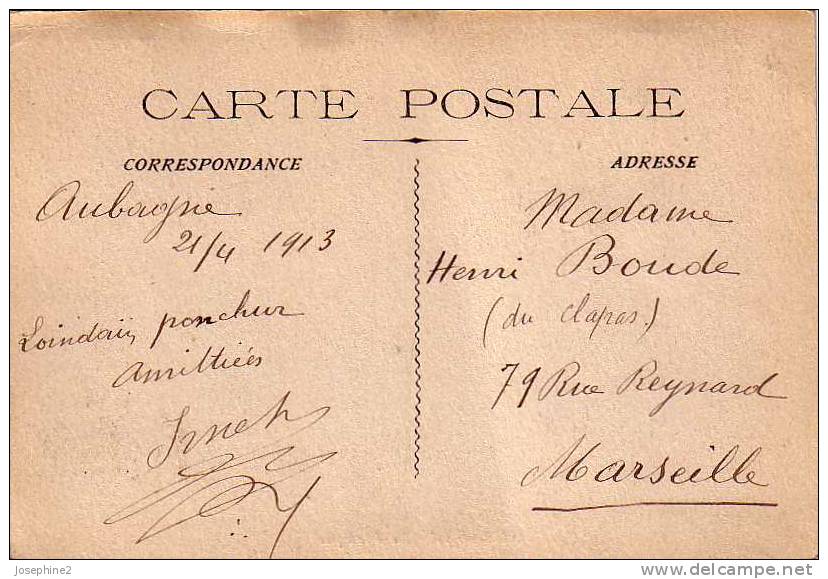 CARTE POSTALE
CORRESPONDANCE
Aubagne
21/4 1913
ponchur
ADRESSE
Madame
Henri Boude
(du Clapas.)
79 Rue Reynard
Marseille
Josephine2
delcampe.net